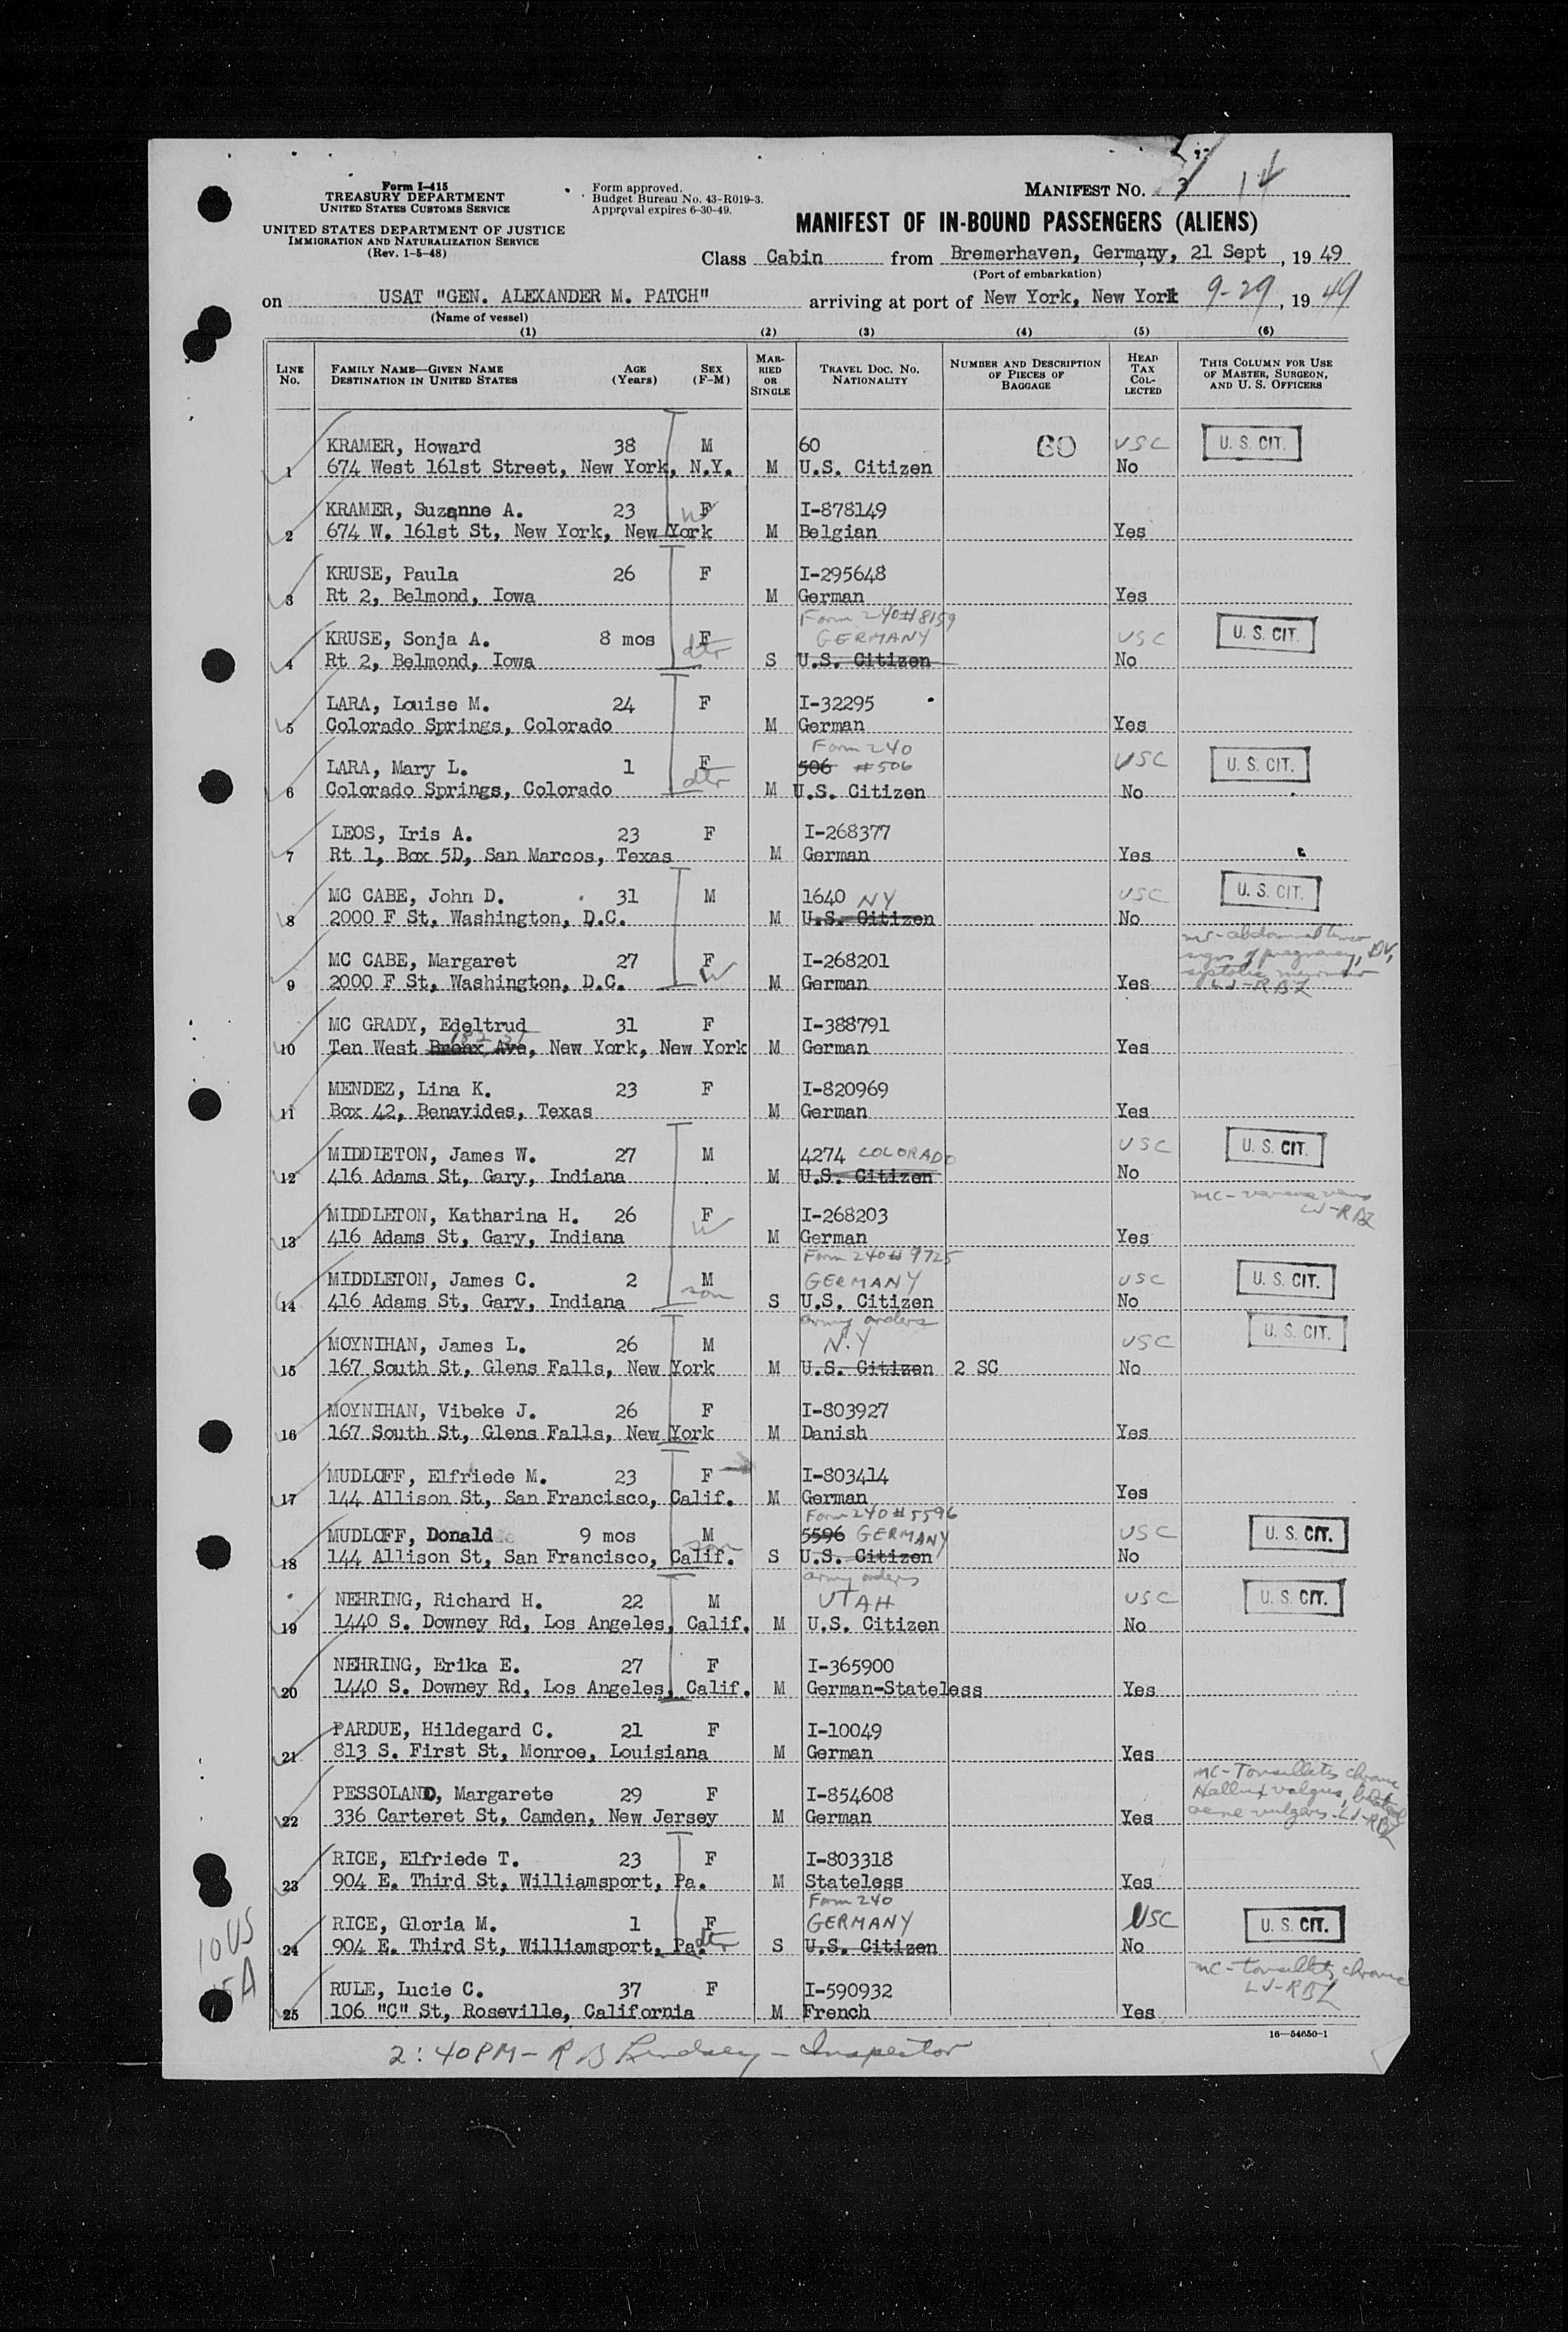 Form I-415
TREASURY DEPARTMENT
UNITED STATES CUSTOMS SERVICE
UNITED STATES DEPARTMENT OF JUSTICE
IMMIGRATION AND NATURALIZATION SERVICE
(Rev. 1-5-48)
Form approved.
Budget Bureau No. 43-R019-3.
Approval expires 6-30-49.
MANIFEST NO. 3 14
MANIFEST OF IN-BOUND PASSENGERS (ALIENS)
Class Cabin from Bremerhaven, Germany, 21 Sept, 1949
(Port of embarkation)
on USAT "GEN. ALEXANDER M. PATCH" arriving at port of New York, New York 9-29, 1949
(Name of vessel)
(1) (2) (3) (4) (5) (6)
LINE NO. FAMILY NAME—GIVEN NAME DESTINATION IN UNITED STATES AGE (Years) SEX (F-M) MARRIED OR SINGLE TRAVEL DOC. NO. NATIONALITY NUMBER AND DESCRIPTION OF PIECES OF BAGGAGE HEAD TAX COLLECTED THIS COLUMN FOR USE OF MASTER, SURGEON, AND U. S. OFFICERS
KRAMER, Howard 38 M 60 60 USC U. S. CIT.
1 674 West 161st Street, New York, N.Y. M U.S. Citizen No
KRAMER, Suzanne A. 23 F W I-878149
2 674 W. 161st St, New York, New York M Belgian Yes
KRUSE, Paula 26 F I-295648
3 Rt 2, Belmond, Iowa M German Yes
Form 240#8159
KRUSE, Sonja A. 8 mos F dtr GERMANY USC U. S. CIT.
4 Rt 2, Belmond, Iowa S U.S. Citizen No
LARA, Louise M. 24 F I-32295
5 Colorado Springs, Colorado M German Yes
Form 240
LARA, Mary L. 1 F dtr 506 #506 USC U. S. CIT.
6 Colorado Springs, Colorado M U.S. Citizen No
LEOS, Iris A. 23 F I-268377
7 Rt 1, Box 5D, San Marcos, Texas M German Yes
MC CABE, John D. 31 M 1640 NY USC U. S. CIT.
8 2000 F St, Washington, D.C. M U.S. Citizen No
mc-abdominal tumor
signs of pregnancy, DV,
systolic murmur
MC CABE, Margaret 27 F W I-268201
9 2000 F St, Washington, D.C. M German Yes LJ-RBL
MC GRADY, Edeltrud 31 F I-388791
10 Ten West Bronx Ave, New York, New York M German Yes
MENDEZ, Lina K. 23 F I-820969
11 Box 42, Benavides, Texas M German Yes
MIDDLETON, James W. 27 M 4274 COLORADO USC U. S. CIT.
12 416 Adams St, Gary, Indiana M U.S. Citizen No
mc-
LJ-RBL
MIDDLETON, Katharina H. 26 F W I-268203
13 416 Adams St, Gary, Indiana M German Yes
Form 240# 9725
MIDDLETON, James C. 2 M son GERMANY USC U. S. CIT.
14 416 Adams St, Gary, Indiana S U.S. Citizen No
army orders
MOYNIHAN, James L. 26 M N.Y USC U. S. CIT.
15 167 South St, Glens Falls, New York M U.S. Citizen 2 SC No
MOYNIHAN, Vibeke J. 26 F I-803927
16 167 South St, Glens Falls, New York M Danish Yes
MUDLOFF, Elfriede M. 23 F I-803414
17 144 Allison St, San Francisco, Calif. M German Yes
Form 240#5596
MUDLOFF, Donald 9 mos M son 5596 GERMANY USC U. S. CIT.
18 144 Allison St, San Francisco, Calif. S U.S. Citizen No
army orders
NEHRING, Richard H. 22 M UTAH USC U. S. CIT.
19 1440 S. Downey Rd, Los Angeles, Calif. M U.S. Citizen No
NEHRING, Erika E. 27 F I-365900
20 1440 S. Downey Rd, Los Angeles, Calif. M German-Stateless Yes
PARDUE, Hildegard C. 21 F I-10049
21 813 S. First St, Monroe, Louisiana M German Yes
mc-Tonsillitis chronic
Hallux valgus, bilateral
acne vulgaris-LJ-RBL
PESSOLAND, Margarete 29 F I-854608
22 336 Carteret St, Camden, New Jersey M German Yes
RICE, Elfriede T. 23 F I-803318
23 904 E. Third St, Williamsport, Pa. M Stateless Yes
Form 240
RICE, Gloria M. 1 F dtr GERMANY USC U. S. CIT.
24 904 E. Third St, Williamsport, Pa. S U.S. Citizen No
10 US
15 A
mc-tonsillitis, chronic
LJ-RBL
RULE, Lucie C. 37 F I-590932
25 106 "C" St, Roseville, California M French Yes
16—54650-1
2:40PM- R B Lindsey - Inspector